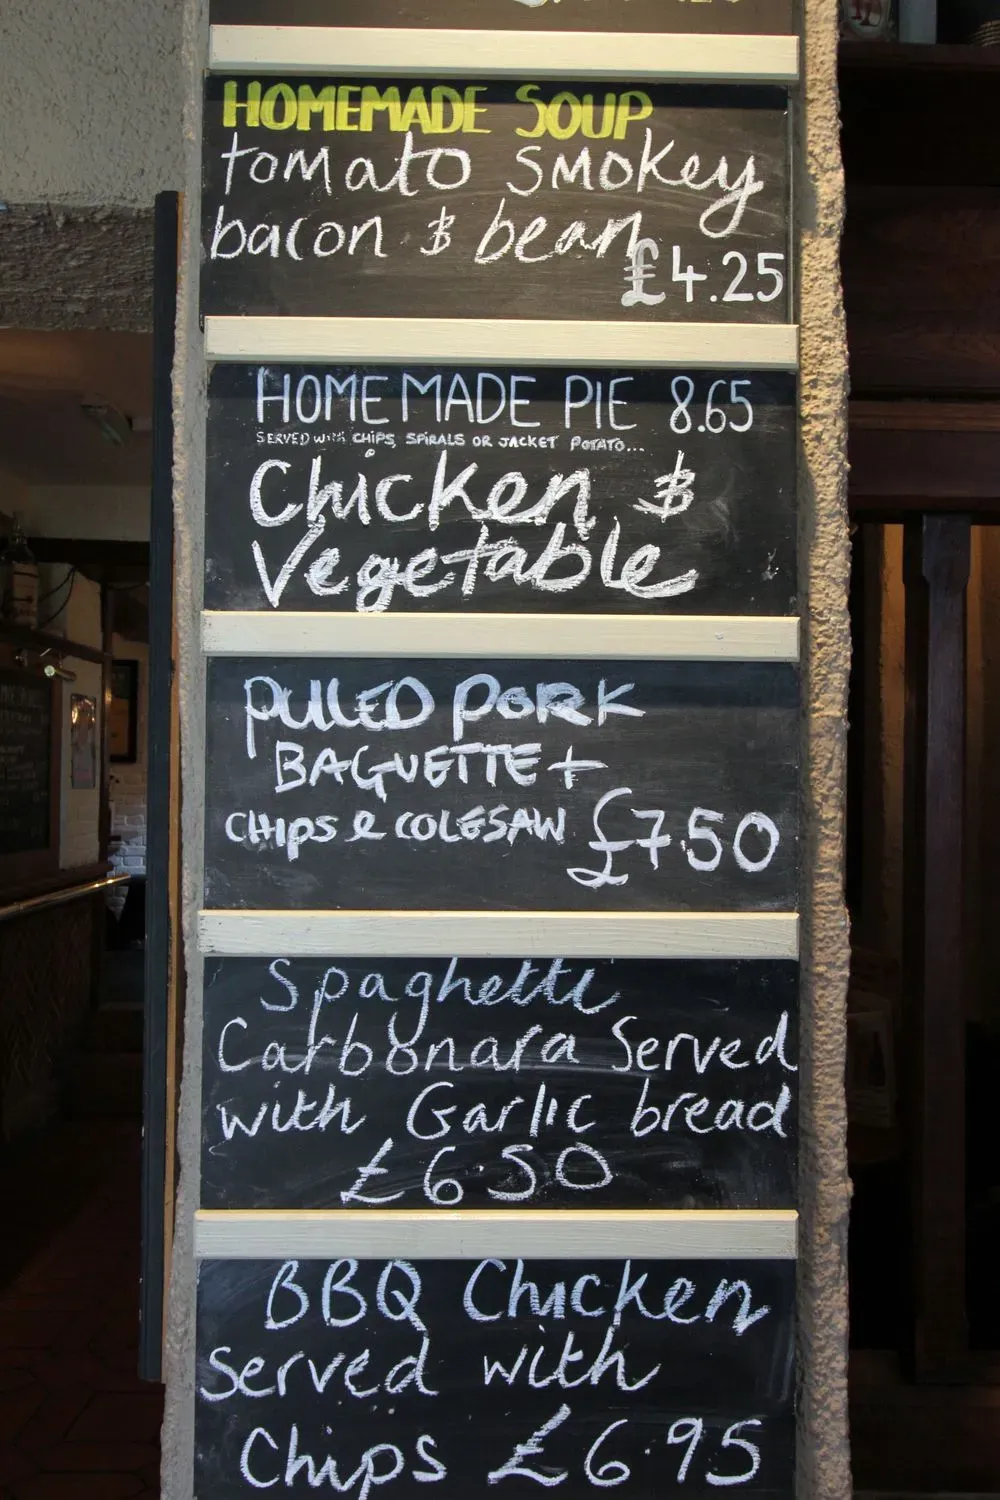 HOMEMADE SOUP
tomato smokey
bacon & bean
£4.25
HOMEMADE PIE 8.65
SERVED WITH CHIPS, SPIRALS OR JACKET POTATO...
Chicken &
Vegetable
PULLED PORK
BAGUETTE +
CHIPS & COLESAW £7.50
Spaghetti
Carbonara Served
with Garlic bread
£6.50
BBQ Chicken
Served with
Chips £6.95